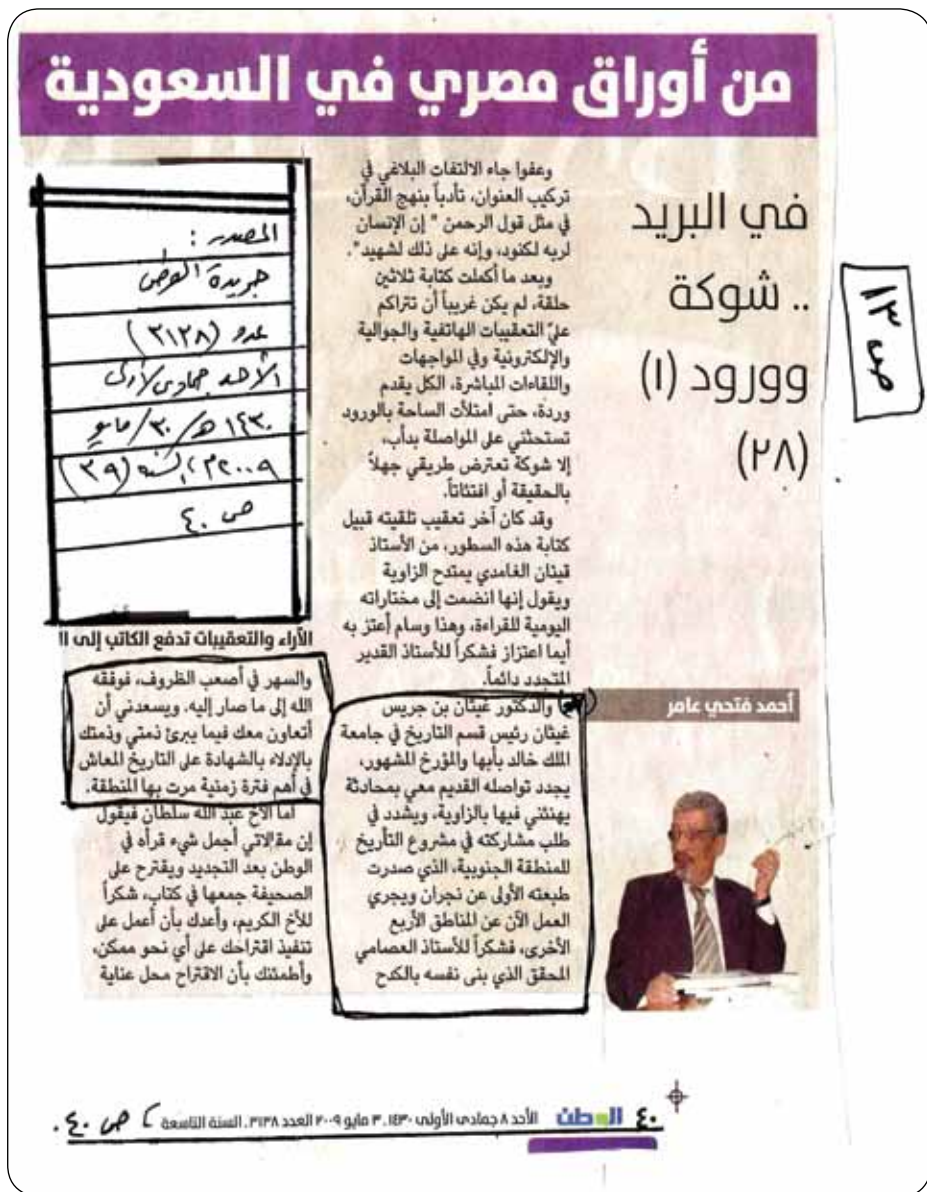 من أوراق مصري في السعودية
في البريد
.. شوكة
وورود (١)
(٢٨)
أحمد فتحي عامر
وعفوا جاء الالتفات البلاغي في
تركيب العنوان، تأدباً بنهج القرآن،
في مثل قول الرحمن " إن الإنسان
لربه لكنود، وإنه على ذلك لشهيد".
وبعد ما أكملت كتابة ثلاثين
حلقة، لم يكن غريباً أن تتراكم
عليّ التعقيبات الهاتفية والجوالية
والإلكترونية وفي المواجهات
واللقاءات المباشرة، الكل يقدم
وردة، حتى امتلأت الساحة بالورود
تستحثني على المواصلة بدأب،
إلا شوكة تعترض طريقي جهلاً
بالحقيقة أو افتئاتاً.
وقد كان آخر تعقيب تلقيته قبيل
كتابة هذه السطور، من الأستاذ
قينان الغامدي يمتدح الزاوية
ويقول إنها انضمت إلى مختاراته
اليومية للقراءة، وهذا وسام أعتز به
أيما اعتزاز فشكراً للأستاذ القدير
المتجدد دائماً.
والدكتور غيثان بن جريس
غيثان رئيس قسم التاريخ في جامعة
الملك خالد بأبها والمؤرخ المشهور،
يجدد تواصله القديم معي بمحادثة
يهنئني فيها بالزاوية، ويشدد في
طلب مشاركته في مشروع التأريخ
للمنطقة الجنوبية، الذي صدرت
طبعته الأولى عن نجران ويجري
العمل الآن عن المناطق الأربع
الأخرى، فشكراً للأستاذ العصامي
المحقق الذي بنى نفسه بالكدح
المصدر :
جريدة
عدد (٣١٢٨)
الأحد جمادى الأولى
١٤٣٠هـ / ٣٠ / مايو
٢٠٠٩م، السنة (٣٩)
ص ٤٠
الآراء والتعقيبات تدفع الكاتب إلى ا
والسهر في أصعب الظروف، فوفقه
الله إلى ما صار إليه. ويسعدني أن
أتعاون معك فيما يبرئ ذمتي وذمتك
بالإدلاء بالشهادة على التاريخ المعاش
في أهم فترة زمنية مرت بها المنطقة.
أما الأخ عبد الله سلطان فيقول
إن مقالاتي أجمل شيء قرأه في
الوطن بعد التجديد ويقترح على
الصحيفة جمعها في كتاب، شكراً
للأخ الكريم، وأعدك بأن أعمل على
تنفيذ اقتراحك على أي نحو ممكن،
وأطمئنك بأن الاقتراح محل عناية
ص ١٣
٤٠ الوطن الأحد ٨ جمادى الأولى ١٤٣٠ـ ٣ مايو ٢٠٠٩ العدد ٣١٣٨ ـ السنة التاسعة ص ٤٠.